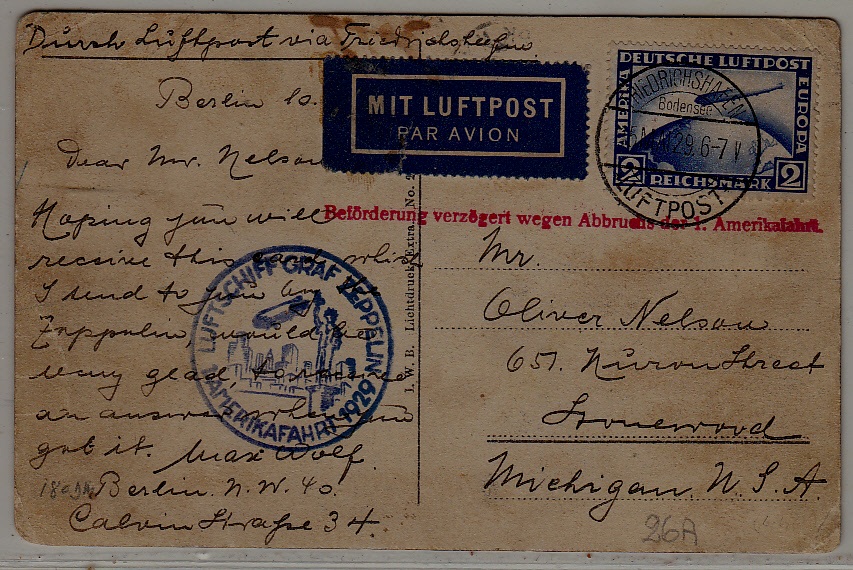 Durch Luftpost via Friedrichshafen.
Berlin 10.
Dear Mr. Nelson
Hoping you will
receive this card, which
I send to you by
Zeppelin, would be
very glad, to receive
an answer when you
got it. Max Wolf.
Berlin. N.W. 40.
Calvin Straße 34.
MIT LUFTPOST
PAR AVION
DEUTSCHE LUFTPOST
AMERIKA
EUROPA
2 REICHSMARK 2
FRIEDRICHSHAFEN
Bodensee
29.6-7 V
LUFTPOST
Beförderung verzögert wegen Abbruchs der 1. Amerikafahrt.
LUFTSCHIFF GRAF ZEPPELIN
AMERIKAFAHRT 1929
I. W. B. Lichtdruck Extra No. 2
Mr.
Oliver Nelson
651. Huron Street
Michigan. U. S. A.
26A